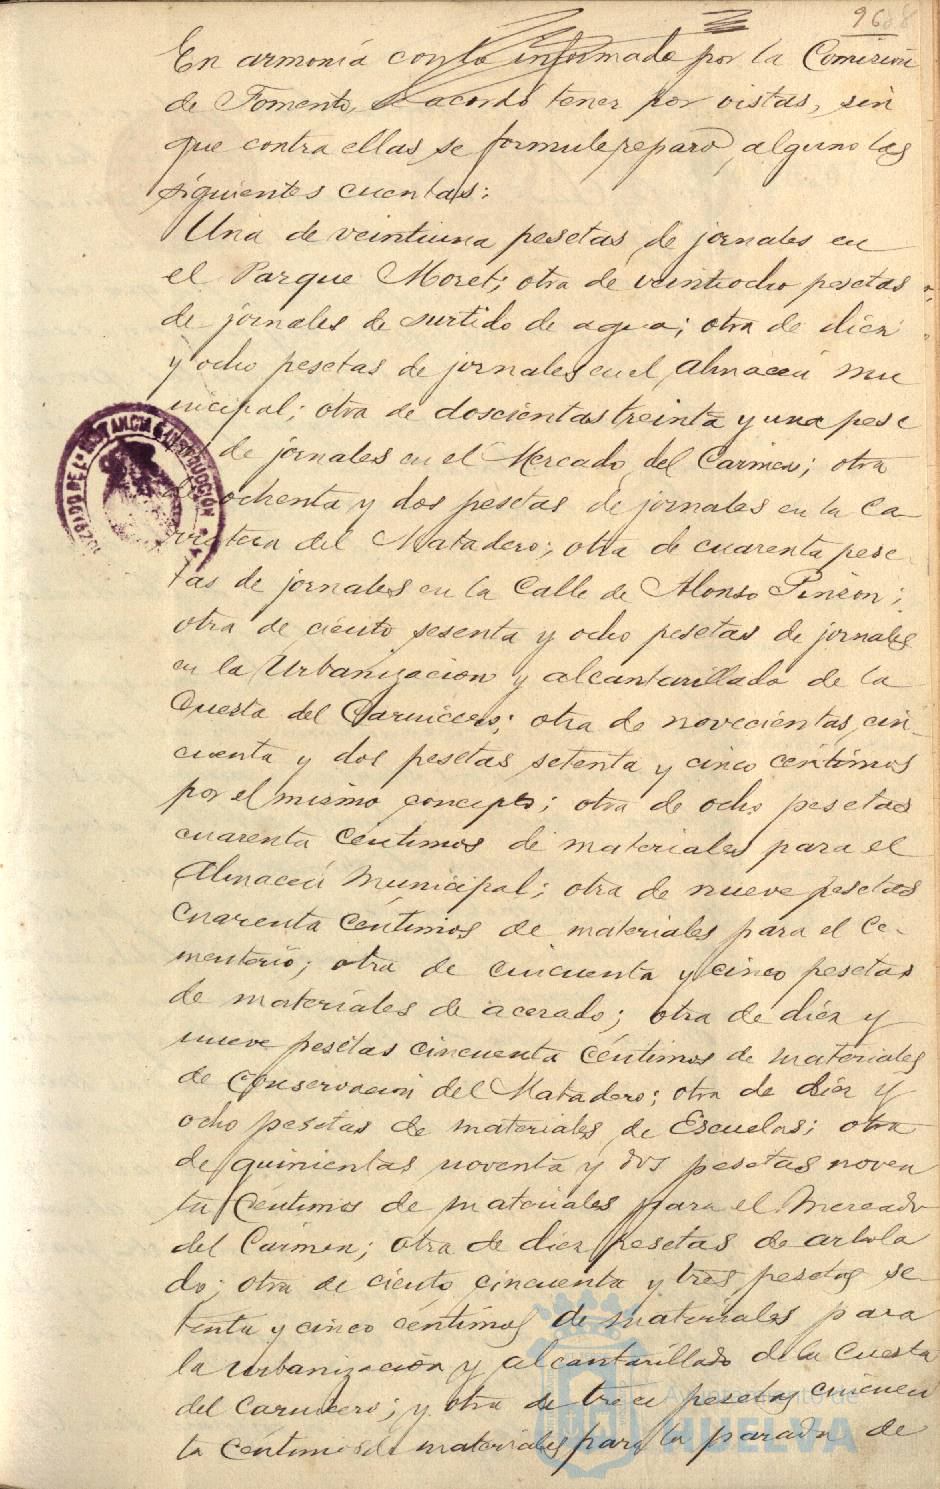 96
En armonía con lo informado por la Comisión
de Fomento, se acordó tener por vistas, sin
que contra ellas se formule reparo alguno las
siguientes cuentas:
Una de veintiuna pesetas de jornales en
el Parque Moret; otra de veintiocho pesetas
de jornales de surtido de agua; otra de diez
y ocho pesetas de jornales en el Almacén mu
nicipal; otra de doscientas treinta y una pese
de jornales en el Mercado del Carmen; otra
de ochenta y dos pesetas de jornales en la Ca
rretera del Matadero; otra de cuarenta pese
tas de jornales en la Calle de Alonso Pinzon;
otra de ciento sesenta y ocho pesetas de jornales
en la Urbanizacion y alcantarillado de la
Cuesta del Carnicero; otra de novecientas cin-
cuenta y dos pesetas setenta y cinco céntimos
por el mismo concepto; otra de ocho pesetas
cuarenta céntimos de materiales para el
Almacén Municipal; otra de nueve pesetas
cuarenta céntimos de materiales para el Ce-
menterio; otra de cincuenta y cinco pesetas
de materiales de acerado; otra de diez y
nueve pesetas cincuenta céntimos de materiales
de conservación del Matadero; otra de diez y
ocho pesetas de materiales de Escuelas; otra
de quinientas noventa y dos pesetas noven
ta céntimos de materiales para el Mercado
del Carmen; otra de diez pesetas de arbola
do; otra de ciento cincuenta y tres pesetas se
tenta y cinco centimos de materiales para
la urbanización y alcantarillado de la Cuesta
del Carnicero; y otra de trece pesetas cincuen
ta céntimos de materiales para la parada de
JUZGADO DE 1ª INSTANCIA E INSTRUCCIÓN
Ayuntamiento de
HUELVA